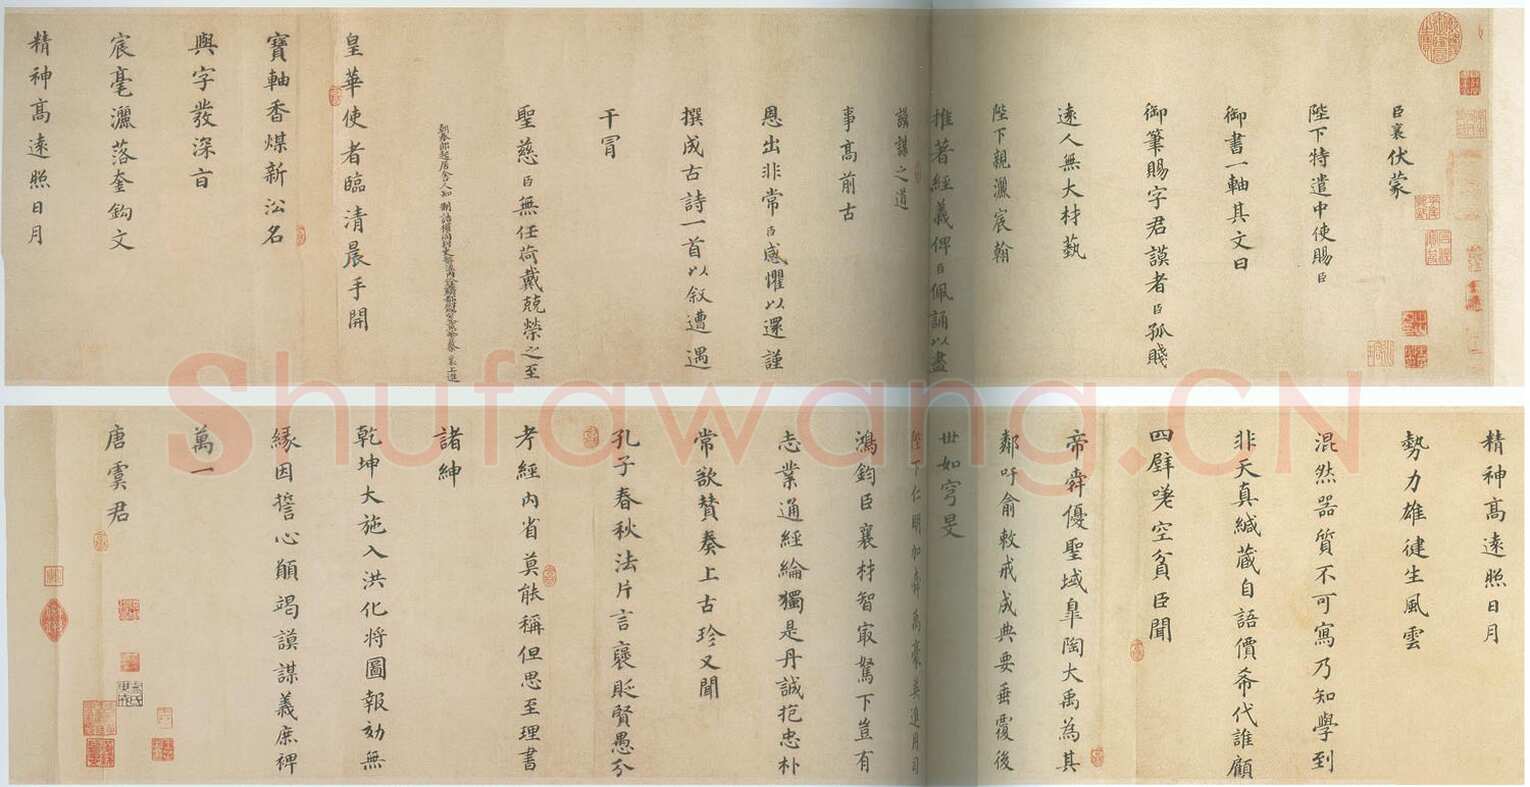 臣襄伏蒙
陛下特遣中使賜臣
御書一軸其文曰
御筆賜字君謨者臣孤賤
遠人無大材藝
陛下親灑宸翰
推著經義俾臣佩誦以盡
謨謀之道
事高前古
恩出非常臣感懼以還謹
撰成古詩一首以叙遭遇
干冒
聖慈臣無任荷戴兢榮之至
朝奉郎起居舍人知制誥
襄上進
皇華使者臨清晨手開
寶軸香煤新沿名
與字發深旨
宸毫灑落奎鈎文
精神高遠照日月
精神高遠照日月
勢力雄健生風雲
混然器質不可寫乃知學到
非天真緘藏自語價希代誰顧
四壁嘆空貧臣聞
帝舜優聖域皐陶大禹為其
鄰吁俞敕戒成典要垂覆後
世如穹旻
陛下仁明加舜禹豪英進用司
鴻鈞臣襄材智最駑下豈有
志業通經綸獨是丹誠抱忠朴
常欲賛奏上古珍又聞
孔子春秋法片言褒貶賢愚分
考經內省莫能稱但思至理書
諸紳
乾坤大施入洪化將圖報効無
緣因誓心願竭謨謀義庶裨
萬一
唐虞君
Shufawang.CN